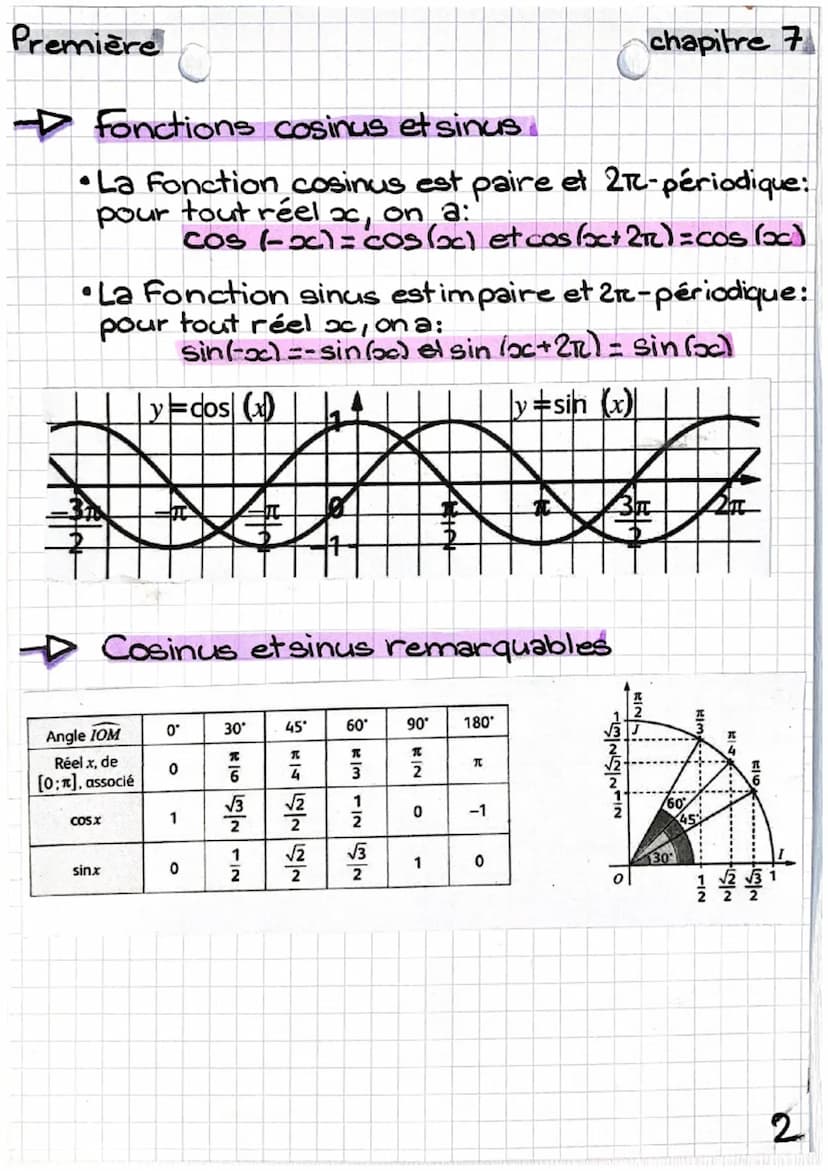 Première
chapitre 7
Fonctions cosinus et sinus
• La Fonction cosinus est paire et 2π-périodique:
pour tout réel x, on a:
cos (-x) = cos (x) et cos (x+2π) = cos (x)
• La Fonction sinus est impaire et 2π-périodique:
pour tout réel x, on a:
sin(-x) = -sin (x) et sin (x+2π) = sin (x)
y=cos (x)
1
y=sin (x)
-3π/2
-π
-π/2
0
π/2
π
3π/2
2π
-1
Cosinus et sinus remarquables
Angle IOM 0° 30° 45° 60° 90° 180°
Réel x, de
[0;π], associé 0 π/6 π/4 π/3 π/2 π
cosx 1 √3/2 √2/2 1/2 0 -1
sinx 0 1/2 √2/2 √3/2 1 0
1 π/2
J
π/3
√3/2
π/4
√2/2
π/6
1/2
60°
45°
30°
I
O
1/2 √2/2 √3/2 1
2